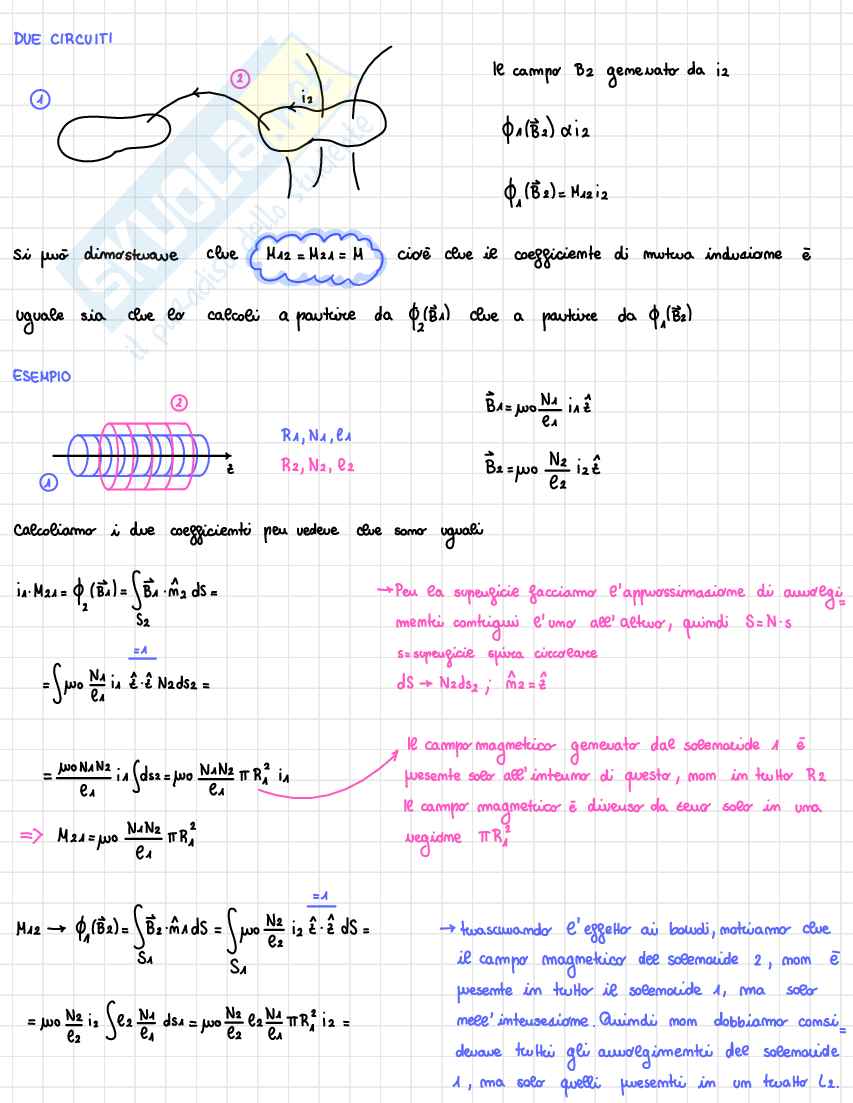 DUE CIRCUITI
① ② i₂
Il campo B₂ generato da i₂
ϕ₁(B⃗₂) α i₂
ϕ₁(B⃗₂) = M₁₂ i₂
SKUOLA.net
il paradiso dello studente
Si può dimostrare che M₁₂ = M₂₁ = M cioè che il coefficiente di mutua induzione è
uguale sia che lo calcoli a partire da ϕ₂(B⃗₁) che a partire da ϕ₁(B⃗₂)
ESEMPIO
② ① z
R₁, N₁, l₁
R₂, N₂, l₂
B⃗₁ = μ₀ N₁/l₁ i₁ ẑ
B⃗₂ = μ₀ N₂/l₂ i₂ ẑ
Calcoliamo i due coefficienti per vedere che sono uguali
i₁·M₂₁ = ϕ₂(B⃗₁) = ∫S₂ B⃗₁·n̂₂ dS =
→ Per la superficie facciamo l'approssimazione di avvolgi=
menti contigui l'uno all'altro, quindi S=N·s
s=superficie spira circolare
dS → N₂ds₂ ; n̂₂=ẑ
=1
= ∫ μ₀ N₁/l₁ i₁ ẑ·ẑ N₂ds₂ =
= μ₀N₁N₂/l₁ i₁ ∫ds₂ = μ₀ N₁N₂/l₁ πR₁² i₁
Il campo magnetico generato dal solenoide 1 è
presente solo all'interno di questo, non in tutto R₂
Il campo magnetico è diverso da zero solo in una
regione πR₁²
=> M₂₁ = μ₀ N₁N₂/l₁ πR₁²
=1
M₁₂ → ϕ₁(B⃗₂) = ∫S₁ B⃗₂·n̂₁ dS = ∫S₁ μ₀ N₂/l₂ i₂ ẑ·ẑ dS =
= μ₀ N₂/l₂ i₂ ∫ l₂ N₁/l₁ ds₁ = μ₀ N₂/l₂ l₂ N₁/l₁ πR₁² i₂ =
→ trascurando l'effetto ai bordi, notiamo che
il campo magnetico del solenoide 2, non è
presente in tutto il solenoide 1, ma solo
nell'intersezione. Quindi non dobbiamo consi=
derare tutti gli avvolgimenti del solenoide
1, ma solo quelli presenti in un tratto L₂.